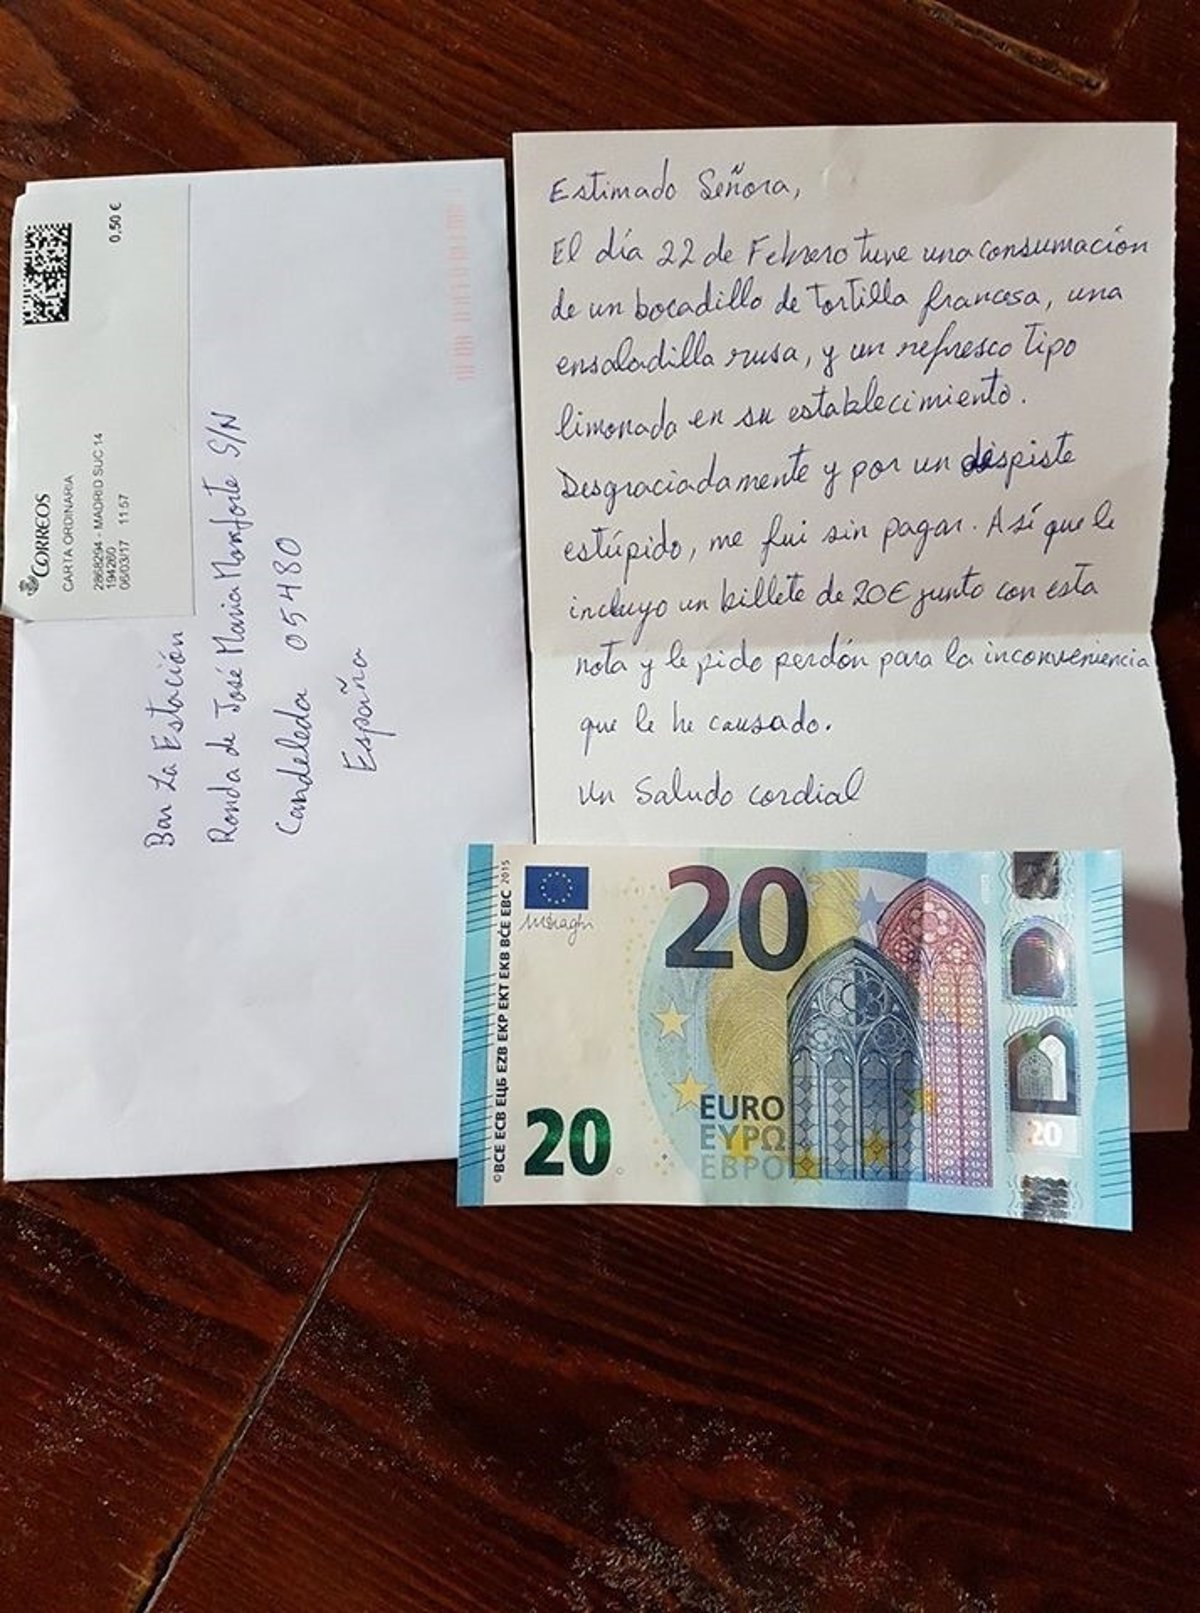 CORREOS
CARTA ORDINARIA
0,50 €
2868294 - MADRID SUC 14
194260
06/03/17 11:57
Bar La Estación
Ronda de José Maria Monforte S/N
Candeleda 05480
España
Estimado Señora,
El día 22 de Febrero tuve una consumación
de un bocadillo de tortilla francesa, una
ensaladilla rusa, y un refresco tipo
limonada en su establecimiento.
Desgraciadamente y por un despiste
estúpido, me fui sin pagar. Así que le
incluyo un billete de 20€ junto con esta
nota y le pido perdón para la inconveniencia
que le he causado.
Un Saludo cordial
©BCE ECB ЕЦБ EZB EKP EKT EKB BĊE EBC 2015
MDraghi
20
20
EURO
ΕΥΡΩ
ЕВРО
20